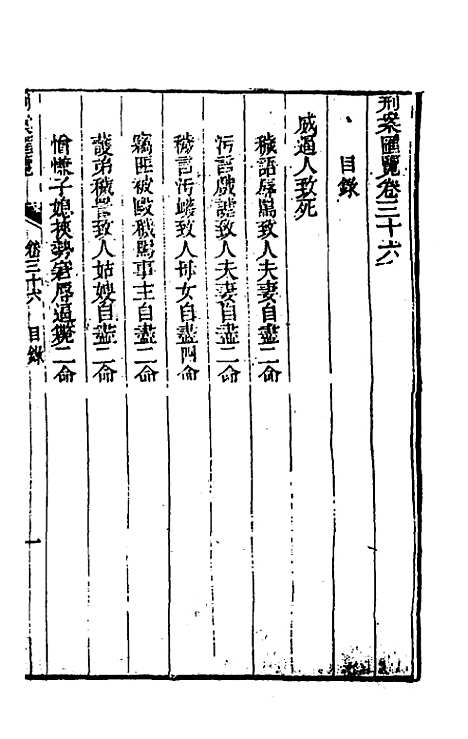 刑案匯覽卷三十六
目錄
威逼人致死
穢語辱罵致人夫妻自盡二命
污言戲謔致人夫妻自盡二命
穢言污衊致人母女自盡四命
竊匪被毆穢罵事主自盡二命
護弟穢詈致人姑嫂自盡二命
子媳挾勢窘辱逼斃二命
刑案匯覽 卷三十六 目錄 一